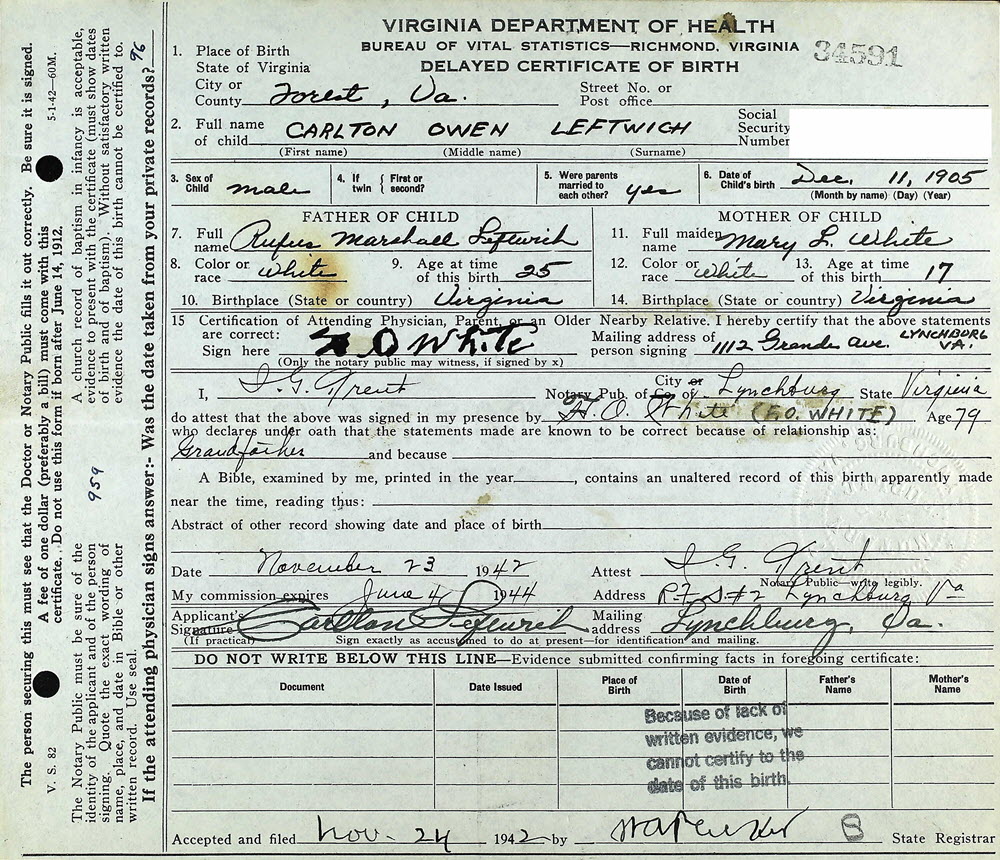 VIRGINIA DEPARTMENT OF HEALTH
BUREAU OF VITAL STATISTICS—RICHMOND, VIRGINIA
34591
DELAYED CERTIFICATE OF BIRTH
1. Place of Birth
State of Virginia
City or County Forest, Va. Street No. or Post office
2. Full name of child CARLTON OWEN LEFTWICH Social Security Number
(First name) (Middle name) (Surname)
3. Sex of Child male 4. If twin { First or second? 5. Were parents married to each other? yes 6. Date of Child's birth Dec. 11, 1905
(Month by name) (Day) (Year)
FATHER OF CHILD MOTHER OF CHILD
7. Full name Rufus Marshall Leftwich 11. Full maiden name Mary L. White
8. Color or race White 9. Age at time of this birth 25 12. Color or race White 13. Age at time of this birth 17
10. Birthplace (State or country) Virginia 14. Birthplace (State or country) Virginia
15 Certification of Attending Physician, Parent, or an Older Nearby Relative. I hereby certify that the above statements
are correct:
Sign here O White Mailing address of person signing 1112 Grande Ave. LYNCHBURG VA.
(Only the notary public may witness, if signed by x)
I, I. G. Trent Notary Pub. of City or Co. of Lynchburg State Virginia
do attest that the above was signed in my presence by H. O. White (F.O. WHITE) Age 79
who declares under oath that the statements made are known to be correct because of relationship as:
Grandfather and because
A Bible, examined by me, printed in the year , contains an unaltered record of this birth apparently made
near the time, reading thus:
Abstract of other record showing date and place of birth
Date November 23 1942 Attest I. G. Trent
Notary Public—write legibly.
My commission expires June 4, 1944 Address R.F.D. #2 Lynchburg Va
Applicant's Signature Carlton Leftwich Mailing address Lynchburg, Va.
(If practical) Sign exactly as accustomed to do at present—for identification and mailing.
DO NOT WRITE BELOW THIS LINE—Evidence submitted confirming facts in foregoing certificate:
Document Date Issued Place of Birth Date of Birth Father's Name Mother's Name
Because of lack of
written evidence, we
cannot certify to the
date of this birth.
Accepted and filed Nov. 24 1942 by B State Registrar
The person securing this must see that the Doctor or Notary Public fills it out correctly. Be sure it is signed.
V. S. 82 5-1-42—60M.
A fee of one dollar (preferably a bill) must come with this
certificate. Do not use this form if born after June 14, 1912.
The Notary Public must be sure of the
identity of the applicant and of the person
signing. Quote the exact wording of
name, place, and date in Bible or other
written record. Use seal.
959
A church record of baptism in infancy is acceptable,
evidence to present with the certificate (must show dates
of birth and of baptism). Without satisfactory written
evidence the date of this birth cannot be certified to.
96
If the attending physician signs answer:- Was the date taken from your private records?